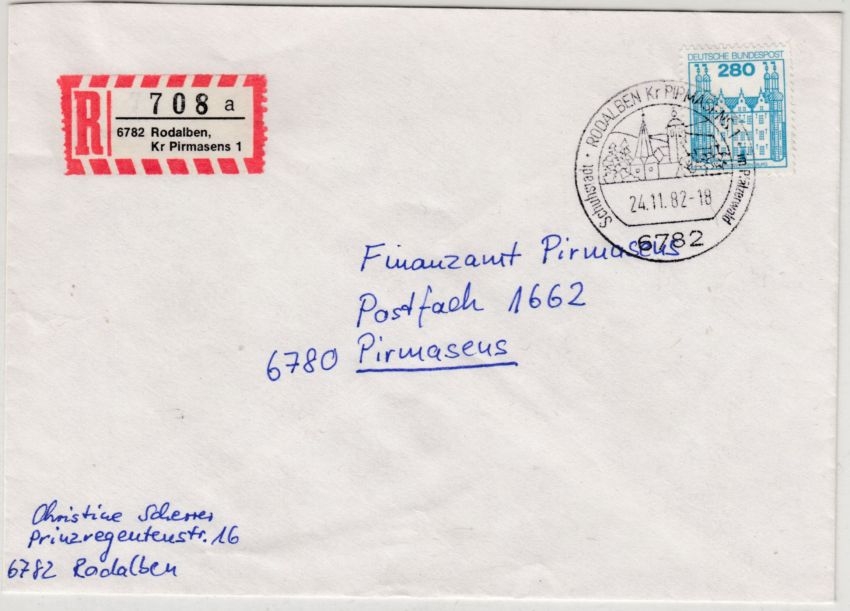 R 708 a
6782 Rodalben,
Kr Pirmasens 1
DEUTSCHE BUNDESPOST
280
Schuhstadt · RODALBEN Kr PIRMASENS 1 · im Pfälzerwald
24.11.82-18
6782
Finanzamt Pirmasens
Postfach 1662
6780 Pirmasens
Christine Scherrer
Prinzregentenstr. 16
6782 Rodalben